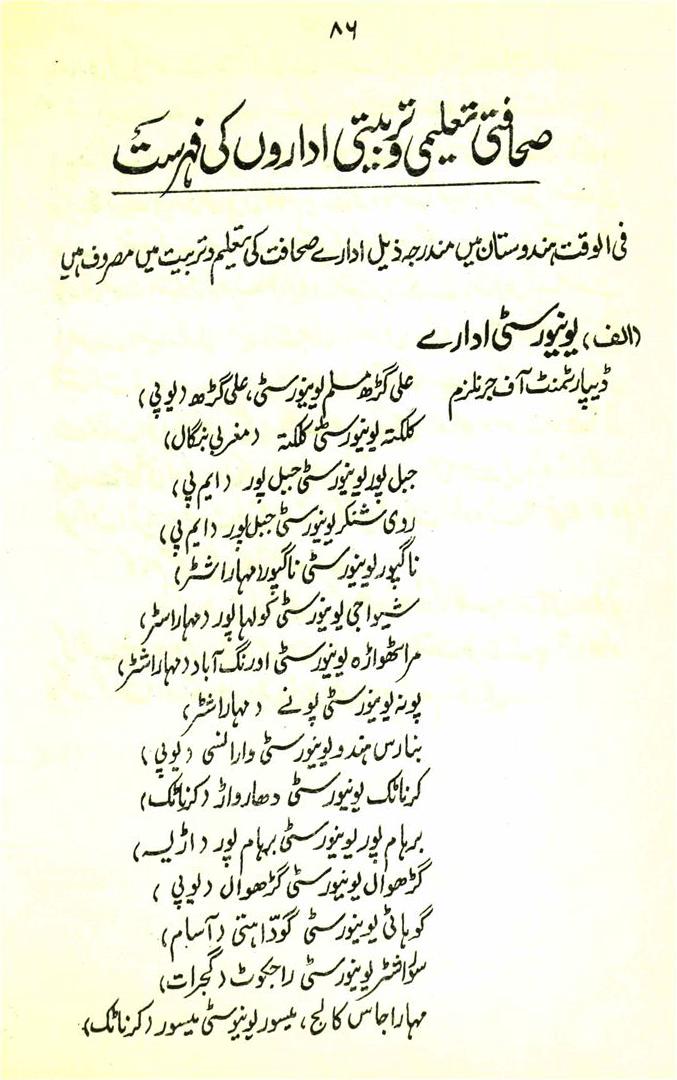 ۸۶
صحافتی تعلیمی و تربیتی اداروں کی فہرست
فی الوقت ہندوستان میں مندرجہ ذیل ادارے صحافت کی تعلیم و تربیت میں مصروف ہیں
(الف) یونیورسٹی ادارے
ڈیپارٹمنٹ آف جرنلزم علی گڑھ مسلم یونیورسٹی، علی گڑھ (یوپی)
کلکتہ یونیورسٹی کلکتہ (مغربی بنگال)
جبل پور یونیورسٹی جبل پور (ایم پی)
روی شنکر یونیورسٹی جبل پور (ایم پی)
ناگپور یونیورسٹی ناگپور (مہاراشٹر)
شیواجی یونیورسٹی کولہا پور (مہاراسٹر)
مراٹھواڑہ یونیورسٹی اورنگ آباد (مہاراشٹر)
پونہ یونیورسٹی پونے (مہاراشٹر)
بنارس ہندو یونیورسٹی وارانسی (یوپی)
کرناٹک یونیورسٹی دھارواڑ (کرناٹک)
برہام پور یونیورسٹی برہام پور (اڑیسہ)
گڑھوال یونیورسٹی گڑھوال (یوپی)
گوہاٹی یونیورسٹی گوداہتی (آسام)
سوراشٹر یونیورسٹی راجکوٹ (گجرات)
مہاراجاس کالج، میسور یونیوسٹی میسور (کرناٹک)